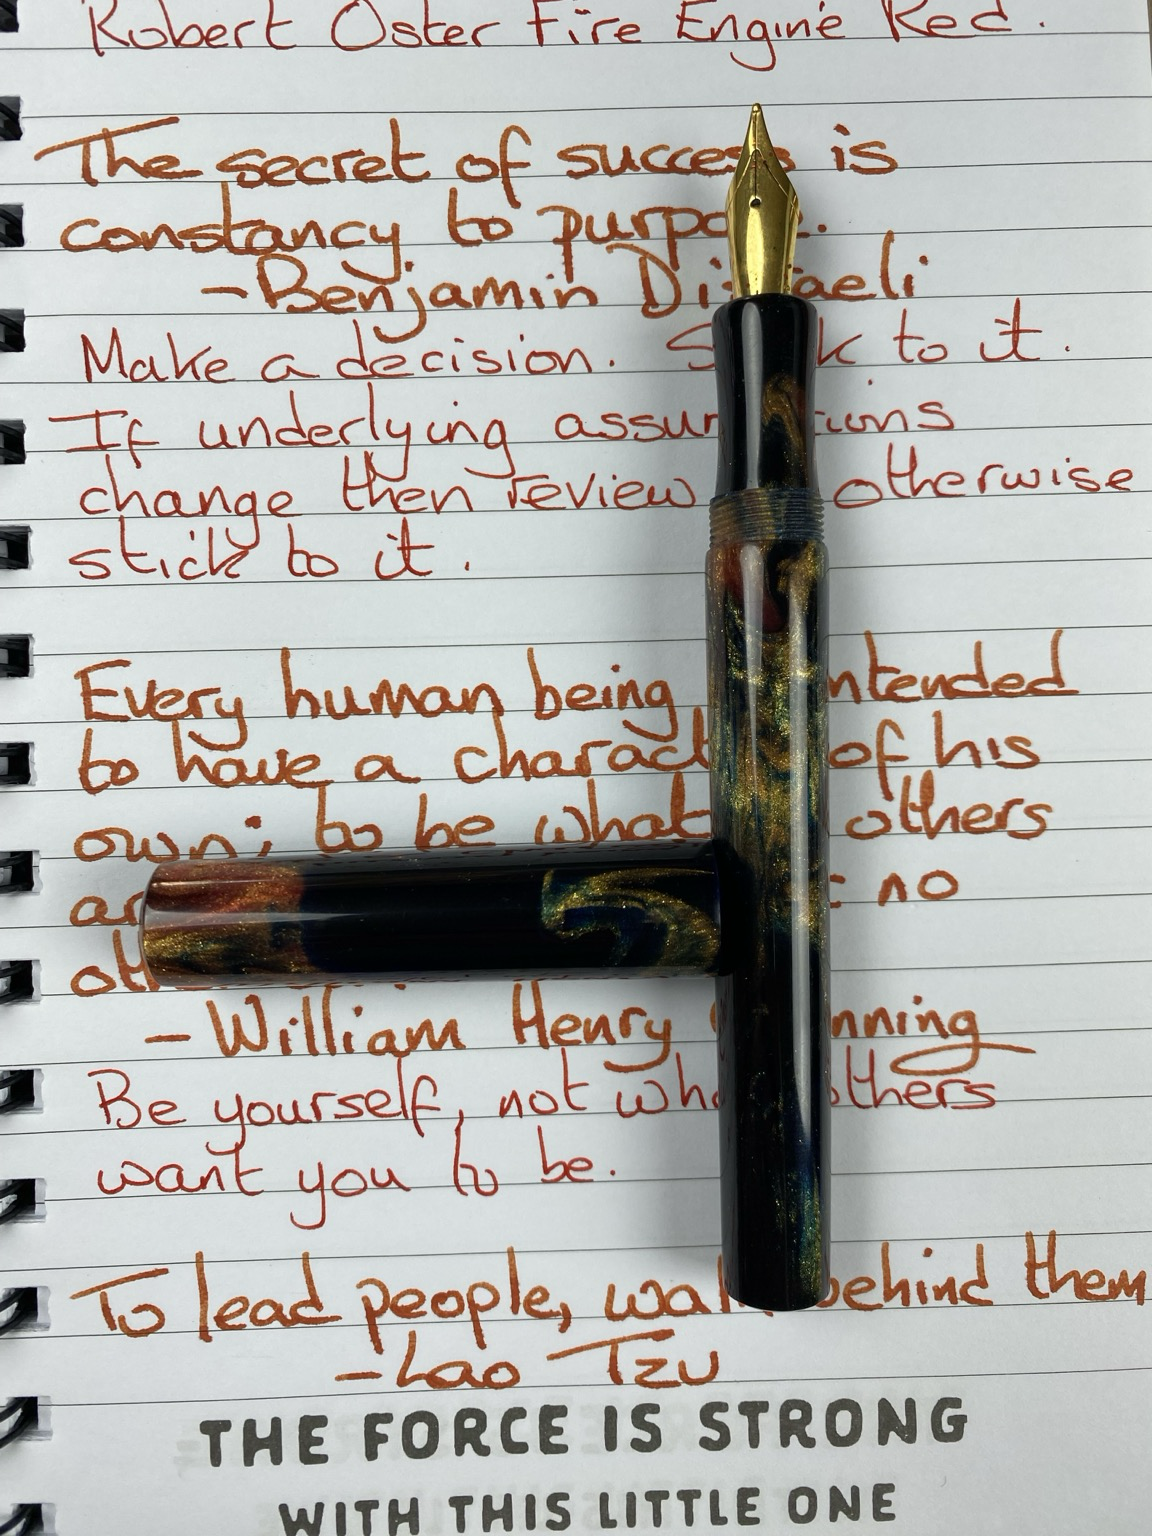 Robert Oster Fire Engine Red.
The secret of success is
constancy to purpose.
-Benjamin Disraeli
Make a decision. Stick to it.
If underlying assumptions
change then review otherwise
stick to it.
Every human being intended
to have a character of his
own; to be what others
no
- William Henry Channing
Be yourself, not what others
want you to be.
To lead people, walk behind them
-Lao Tzu
THE FORCE IS STRONG
WITH THIS LITTLE ONE